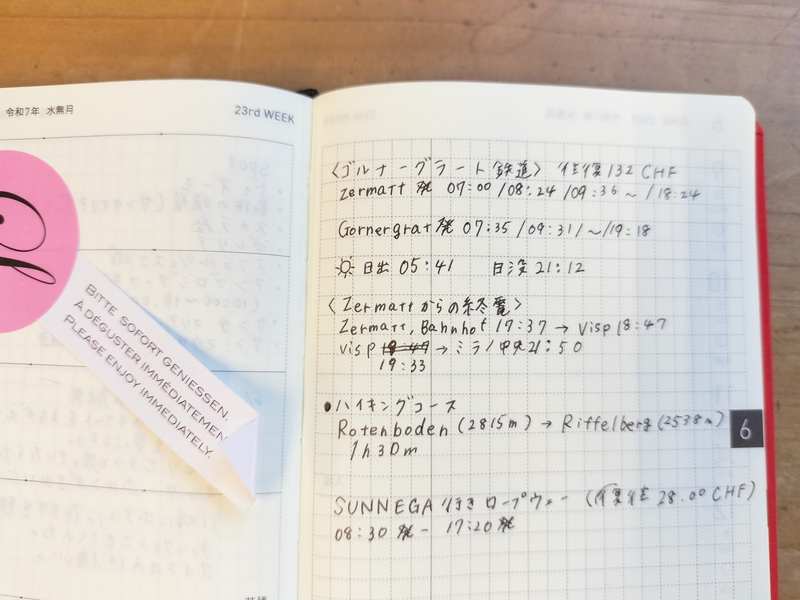 令和7年 水無月
23rd WEEK
BITTE SOFORT GENIESSEN.
À DÉGUSTER IMMÉDIATEMEN
PLEASE ENJOY IMMEDIATELY.
〈ゴルナーグラート鉄道〉 往復132 CHF
Zermatt 発 07:00 /08:24 /09:36 ~ /18:24
Gornergrat 発 07:35 /09:31/~/19:18
日出 05:41 日没 21:12
〈Zermattからの終電〉
Zermatt, Bahnhof 17:37 → Visp 18:47
Visp 18:47 → ミラノ中央21:50
19:33
●ハイキングコース
Rotenboden (2815m) → Riffelberg (2538m)
1h30m
6
SUNNEGA 行き ロープウェー (復往 28.00 CHF)
08:30 発 - 17:20 発